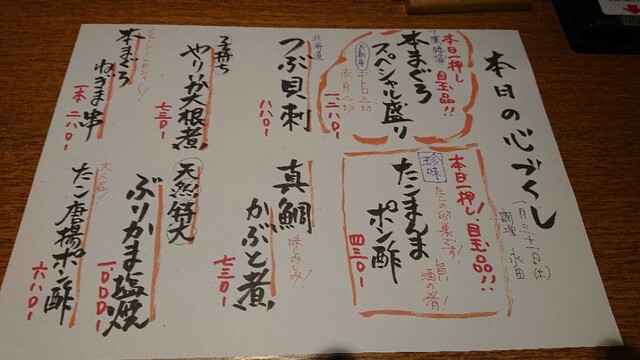 本日の心づくし
一月三十一日(木)
調理 永田
本日一押し
目玉品!!
千葉勝浦
本まぐろ
スペシャル盛り
中とろ三切
赤身二切
一、二八〇ー
北海道
つぶ貝刺
八八〇ー
子持ち
やりいか大根煮
七三〇ー
本まぐろ
ねぎま串
一本 二八〇ー
本日一押し!目玉品!!
珍味
たこまんま
ポン酢
たこの卵巣です!
旨い!
酒の肴!
四三〇ー
真鯛
かぶと煮
味しみ!
七三〇ー
天然特大
ぶりかま塩焼
一、〇〇〇ー
大人気!
たこ唐揚ポン酢
六八〇ー